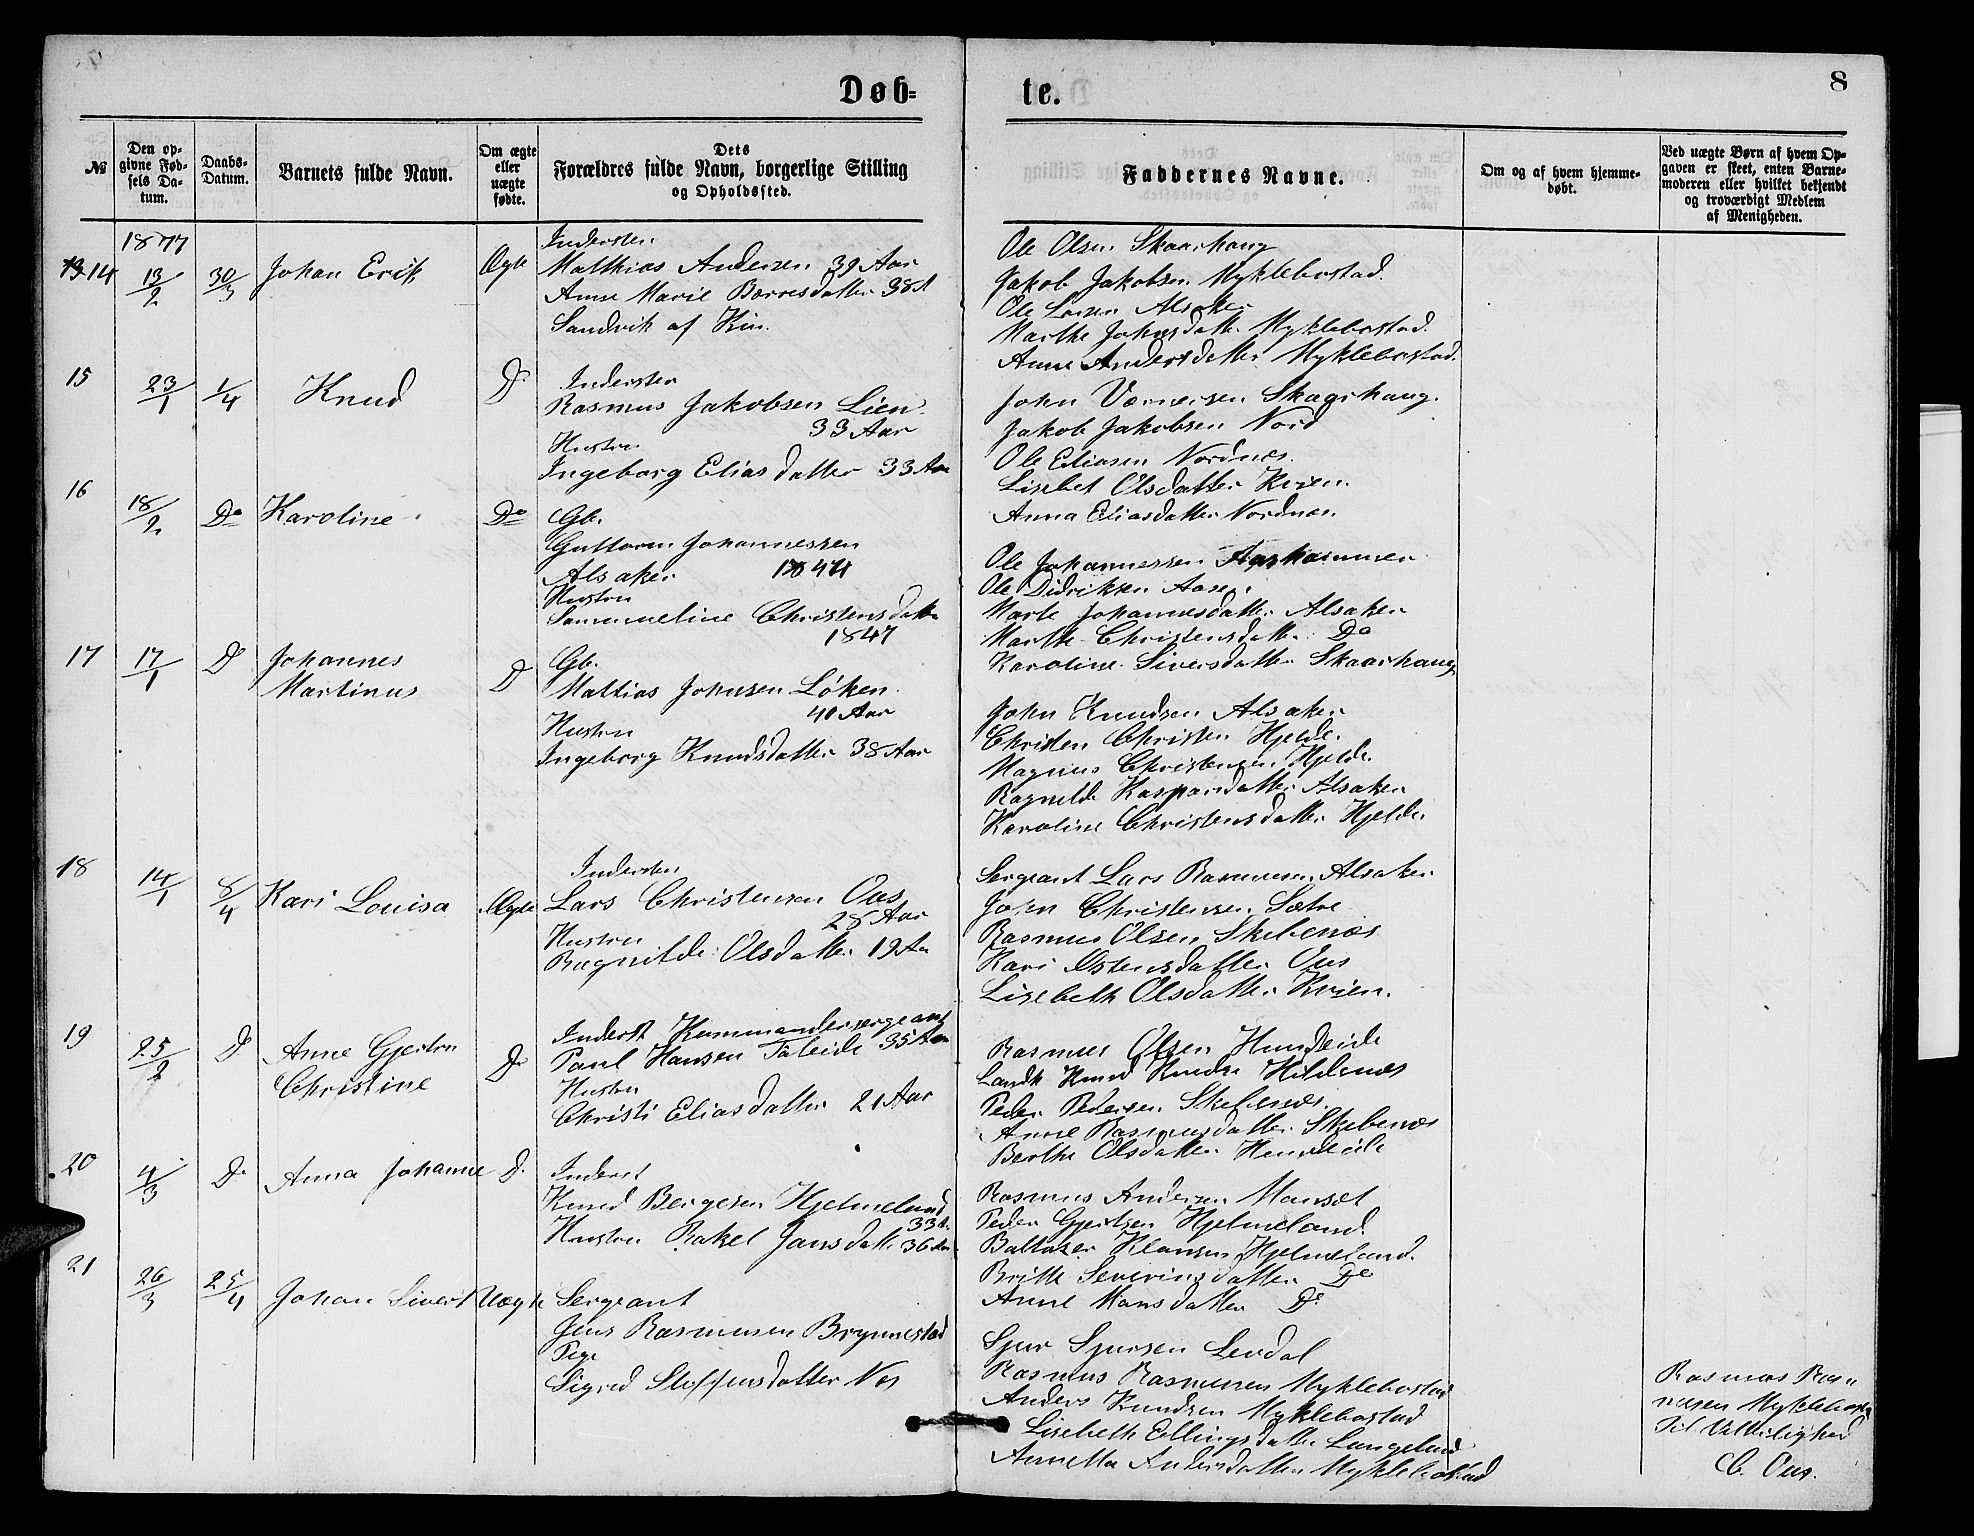 Døb-
№
Den op-
givne Fød-
sels Da-
tum.
Daabs-
Datum.
Barnets fulde Navn.
Om ægte
eller
uægte
fødte.
Dets
Forældres fulde Navn, borgerlige Stilling
og Opholdssted.
1877
14 13/2 30/3 Johan Erik Ægte
Inderster
Matthias Andersen 39 Aar
Anne Marie Børresdatter 38 A
Sandvik af Kin.
15 23/1 1/4 Knud Do
Inderster
Rasmus Jakobsen Lien
33 Aar
Hustru
Ingeborg Eliasdatter 33 Aar
16 18/2 Do Karoline Do
Gb.
Guttorm Johannessen
Alsaker 1844
Hustru
Sammeline Christensdatter
1847
17 17/1 Do Johannes
Martinus D
Gb.
Mattias Johnsen Løken
40 Aar
Hustru
Ingeborg Knudsdatter 38 Aar
18 14/1 8/4 Kari Louisa Ægte
Inderster
Lars Christensen Ous
28 Aar
Hustru
Ragnilde Olsdatter 19 Aar
19 25/2 D Anne Gjertru
Christine D
Inderst Kommandersergeant
Paul Hansen 35 Aar
Hustru
Christi Eliasdatter 21 Aar
20 4/3 D Anna Johanne D.
Inderst
Knud Børgesen Hjelmeland
33 A.
Hustru Rakel Jansdatter 36 Aar
21 26/3 25/4 Johan Sivert Uægte
Sergeant
Jens Rasmusen Brynnestad
Pige
Sigred Steffensdatter Nes
te.
8
Faddernes Navne.
Om og af hvem hjemme-
døbt.
Ved uægte Børn af hvem Op-
gaven er skeet, enten Barne-
moderen eller hvilket bekjendt
og troværdigt Medlem
af Menigheden.
Ole Olsen Skaarhaug
Jakob Jakobsen Myklebostad.
Ole Larsen Alsaker
Marthe Johnsdatter Myklebostad.
Anne Andersdatter Myklebostad.
John Værnersen Skaarhaug.
Jakob Jakobsen Nord
Ole Eliasen Nordnes.
Lisebet Olsdatter Kvien.
Anna Eliasdatter Nordnes.
Ole Johannessen Aarhammer
Ole Didriksen Aasen
Marte Johannesdatter Alsaker
Marthe Christensdatter Do
Karoline Siversdatter Skaarhaug
John Knudsen Alsaker
Christen Christen Hjelde.
Magnus Christensen Hjelde.
Ragnilde Kaspardatter Alsaker
Karoline Christensdatter Hjelde.
Sergeant Lars Rasmusen Alsaker
John Christensen Sætre
Rasmus Olsen Skebenæs
Kari Østensdatter Ous
Lisebeth Olsdatter Kvien.
Rasmus Olsen Hundeide
Landh Knud Knudsen Hildenæs
Peder Pedersen Skebenæs.
Anne Rasmusdatter Skebenæs
Berthe Olsdatter Hundeide
Rasmus Andersen Mansæt
Peder Gjertsen Hjelmeland.
Baltaser Klausen Hjelmeland.
Britte Severinsdatter Do
Anne Monsdatter Do
Sjur Sjursen Levdal
Rasmus Rasmusen Myklebostad
Anders Knudsen Myklebostad
Lisebeth Ellingsdatter Langeland
Annetta Andersdatter Myklebostad
Rasmus Ras-
musen Myklebostad
Til Vitterlighed
C. Ous.